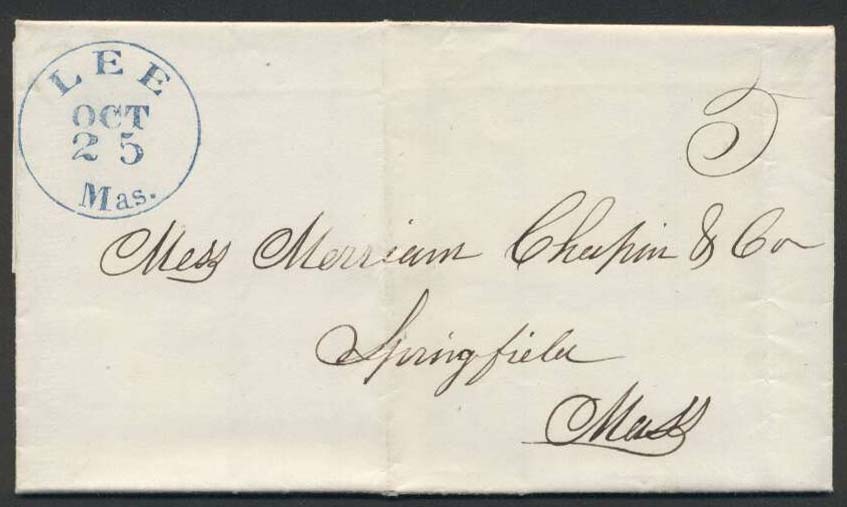 LEE
OCT
25
Mas.
5
Mess Merriam Chapin & Co
Springfield
Mass